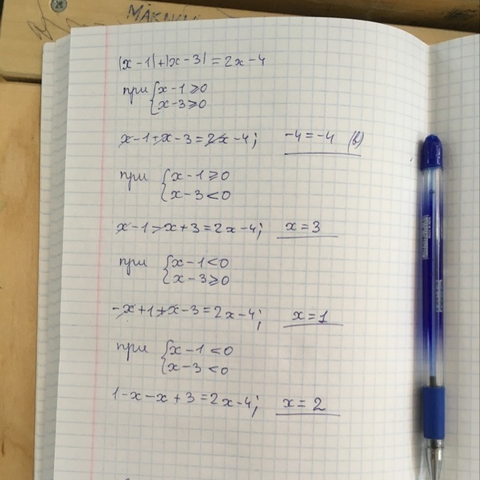 МАКЛ
|x-1|+|x-3|=2x-4
при {x-1≥0
x-3≥0
x-1+x-3=2x-4; -4=-4 (в)
при {x-1≥0
x-3<0
x-1-x+3=2x-4; x=3
при {x-1<0
x-3≥0
-x+1+x-3=2x-4; x=1
при {x-1<0
x-3<0
1-x-x+3=2x-4; x=2